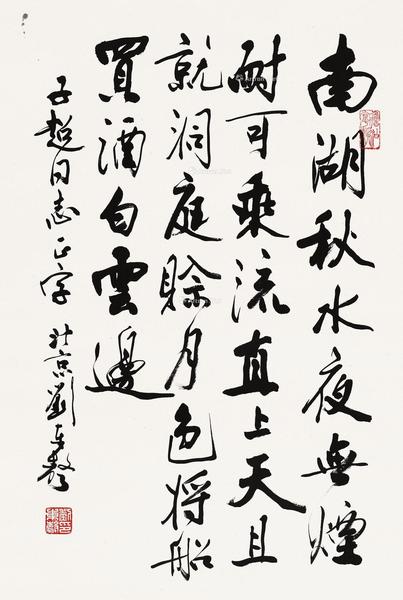 南湖秋水夜無煙
耐可乘流直上天且
就洞庭賒月色将船
買酒白雲邊
子超同志正字 北京劉